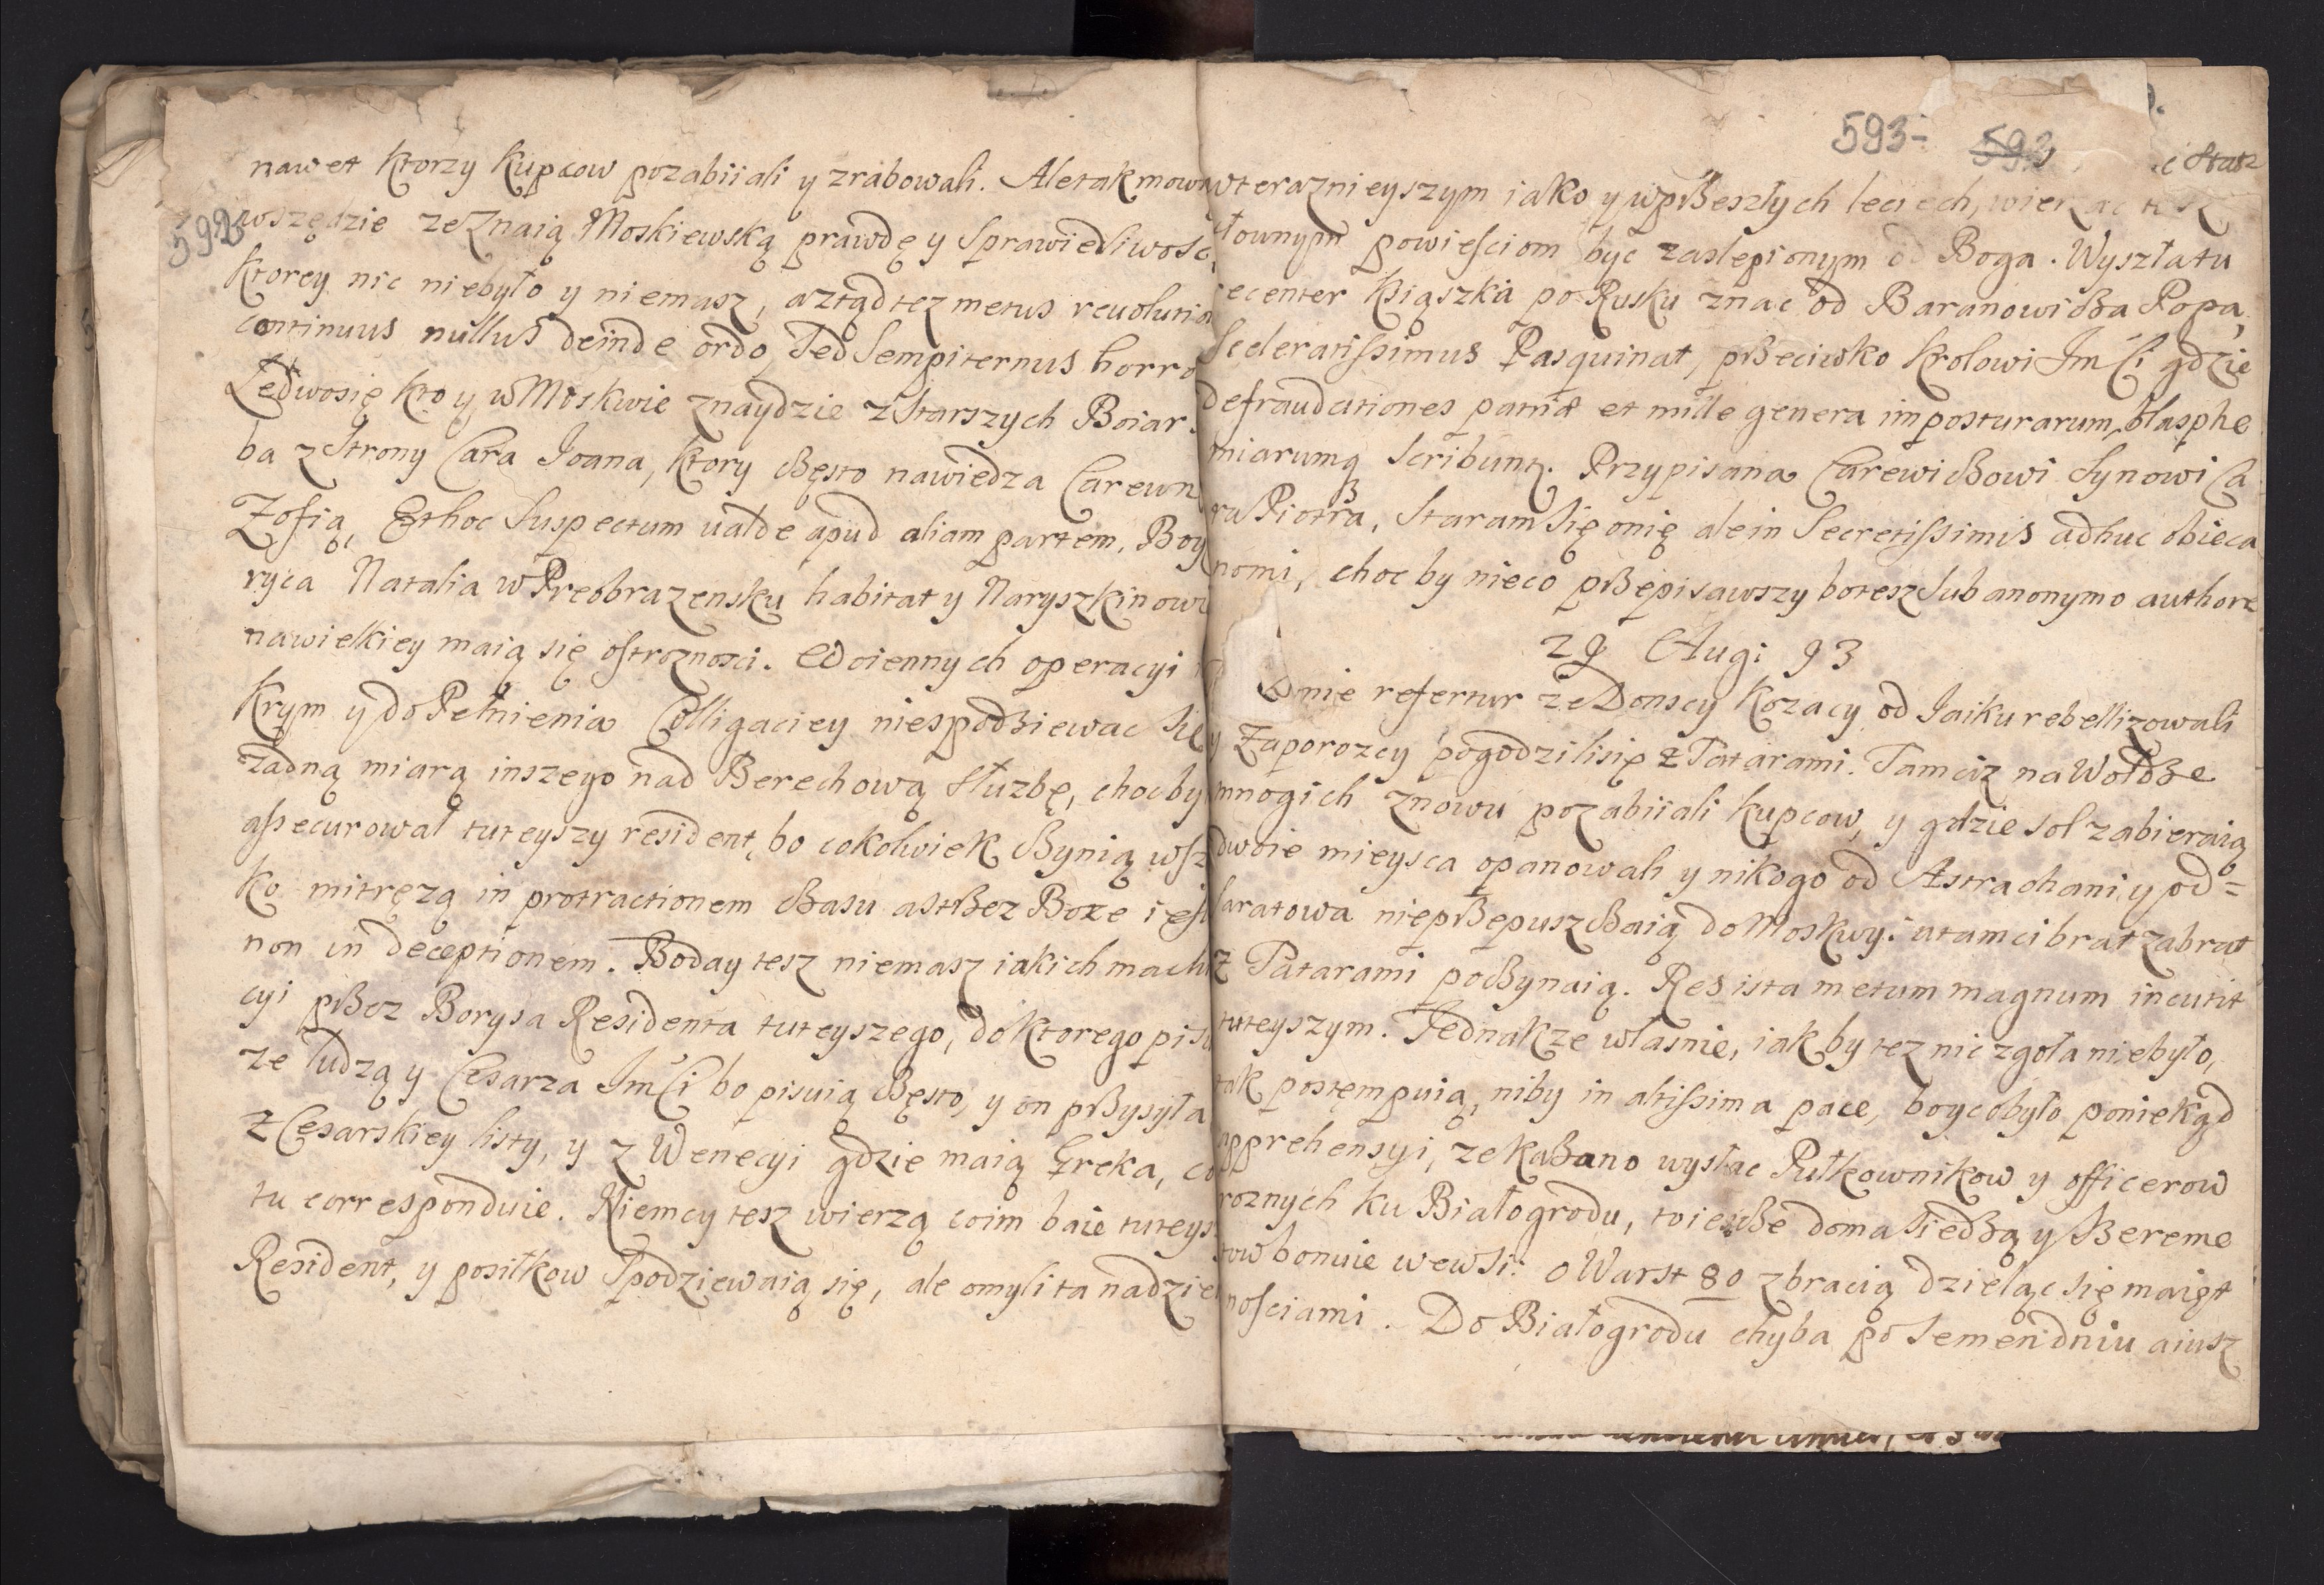 592
nawet ktorzy kupcow pozabiiali y zrabowali. Aletak mowi
wszędzie ze znaią Moskiewską prawdę y Sprawiedliwosc,
ktorey nic niebyło y niemasz, aztądtez metus revolutio
continuus nullus deinde ordo, Sed Sempiternus horro
Ledwosię kto y w Moskwie znaydzie z Starszych Boiar
ba z Strony Cara Joana, ktory często nawiedza Carewn
Zofią, Et hoc Suspectum ualde apud aliam partem. Boy
ryca Natalia w Preobrazensku habitat y Naryszkinow
nawielkiey maią się ostroznosci. Woiennych operacyi
Krym y do Pełnienia Colligaciey niespodziewac się
zadną miarą inszego nad Berechową Słuzbę, chocby
assecurował tuteyszy resident, bo cokolwiek czynią wsz
ko mitręzą in protractionem czasu astrzez Boze iesl
non in deceptionem. Boday tesz niemasz iakich mach
cyi przez Borysa Residenta tuteyszego, do ktorego pis
ze łudzą y Cesarza JmCi bo pisuią często, y on przysyła
z Cesarskiey listy, y z Wenecyi gdzie maią Greka, co
tu correspónduie. Niemcy tesz wierzą coim baie tuteys
Resident, y posiłkow Spodziewaią się, ale omyli ta nadzie
593- 593
wteraznieyszym iako y wprzeszłych leciech, wierzac
słownym powiesciom byc zaslepionym od Boga. Wyszła tu
recenter ksiąszka po Rusku znac od Baranowicza Popa,
Sceleratissimus Pasquinat, przeciwko Krolowi JmCi gdzie
defraudationes patriæ et mille genera imposturarum, blasphe
miarumq Scribunt. Przypisana Carewiczowi Synowi Ca
ra Piotra, Staram Się onię ale in Secretissimis adhuc obieca
nomi, choc by nieco przepisawszy bo tesz Sub anonymo authore
29 Augi 93
mie refertur ze Donscy Kozacy od Jaiku rebellizowali
y Zaporozcy pogodzilisię z Tatarami. Tamciz na Wołdze
mnogich znowu pozabiiali kupcow, y gdzie sol zabieraią
dwoie mieysca opanowali y nikogo od Astrachani y od=
Saratowa nieprzepuszczaią do Moskwy: utamci brat zabrat
z Tatarami poczynaią. Res ista metum magnum incutit
tuteyszym. Jednakze własnie, iak by tez nic zgoła niebyło,
tak postęmpuią, niby in altissima pace, boycobyło poniekąd
apprehensyi, ze kazano wysłac Pułkownikow y officerow
roznych ku Białogrodu, to iescze doma Siedzą y Bereme
tow bonuie wewsi: o Warst 80 z bracią dzieląc się maięt
nosciami. Do Białogrodu chyba po Semen dniu aiusz